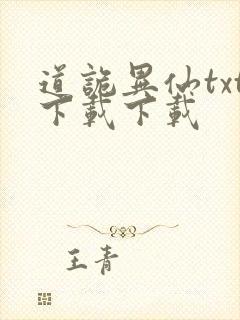 道詭異仙txt
下載下載
王青